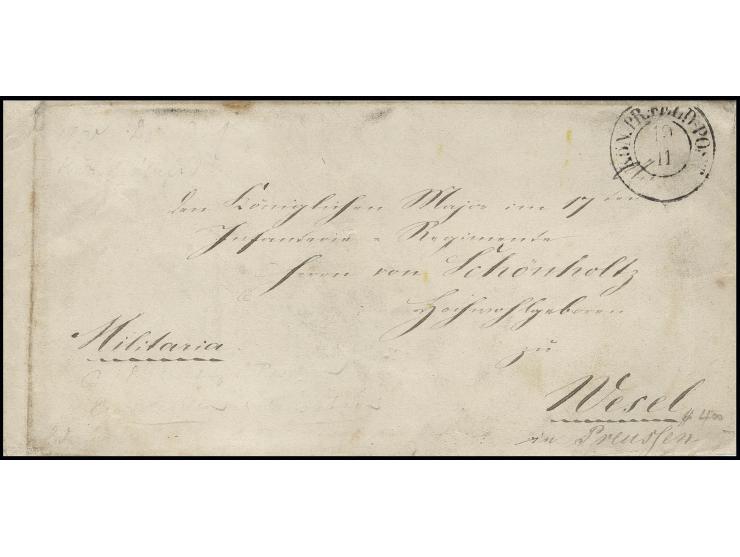 KÖN. PR. FELD-POST
19
11
den Königlichen Major im 17 ten
Infanterie-Regimente
Herrn von Schönholtz
Hochwohlgeboren
Militaria
zu
Wesel
in Preussen
400